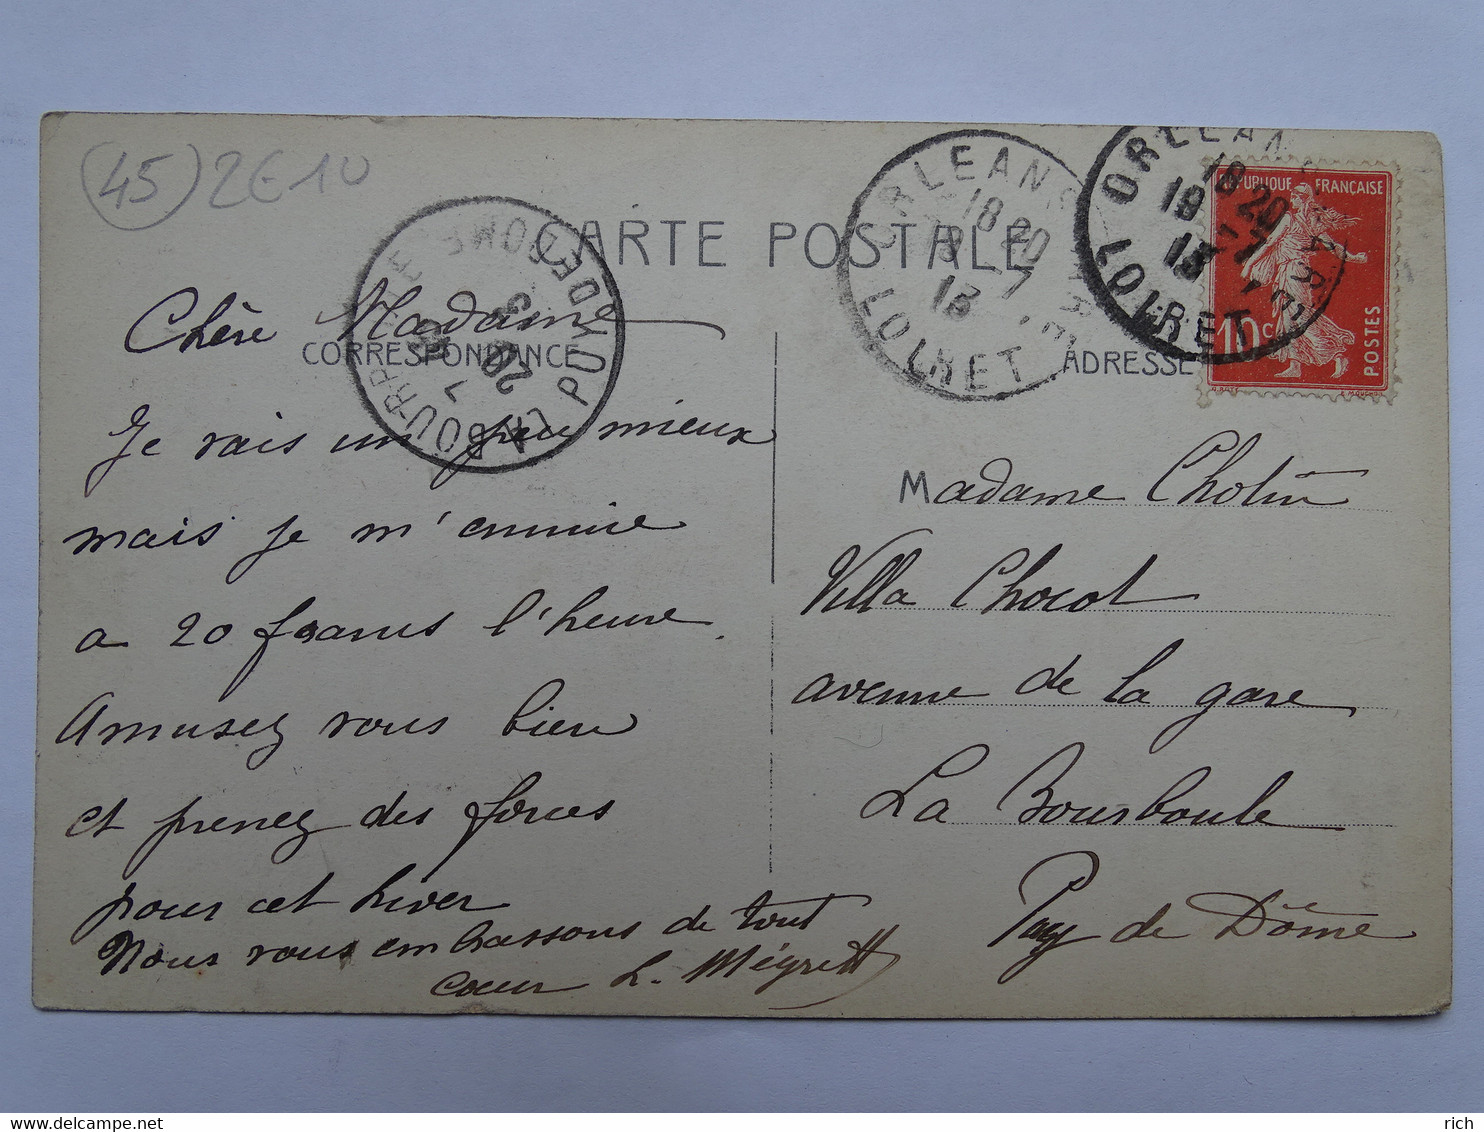 (45) 2E10
CARTE POSTALE
CORRESPONDANCE
ADRESSE
ORLEANS GARE
18 20
19 -7
13
LOIRET
ORLEANS GARE
18 20
19 -7
13
LOIRET
LA BOURBOULE
PUY DE DOME
20 7
RÉPUBLIQUE FRANÇAISE
10 c
POSTES
Chère Madame
Je vais un peu mieux
mais je m'ennuie
a 20 francs l'heure.
Amusez vous bien
et prenez des forces
pour cet hiver
Nous vous embrassons de tout
coeur L. Mégrett
Madame Cholin
Villa Chocot
avenue de la gare
La Bourboule
Puy de Dôme
delcampe.net
rich